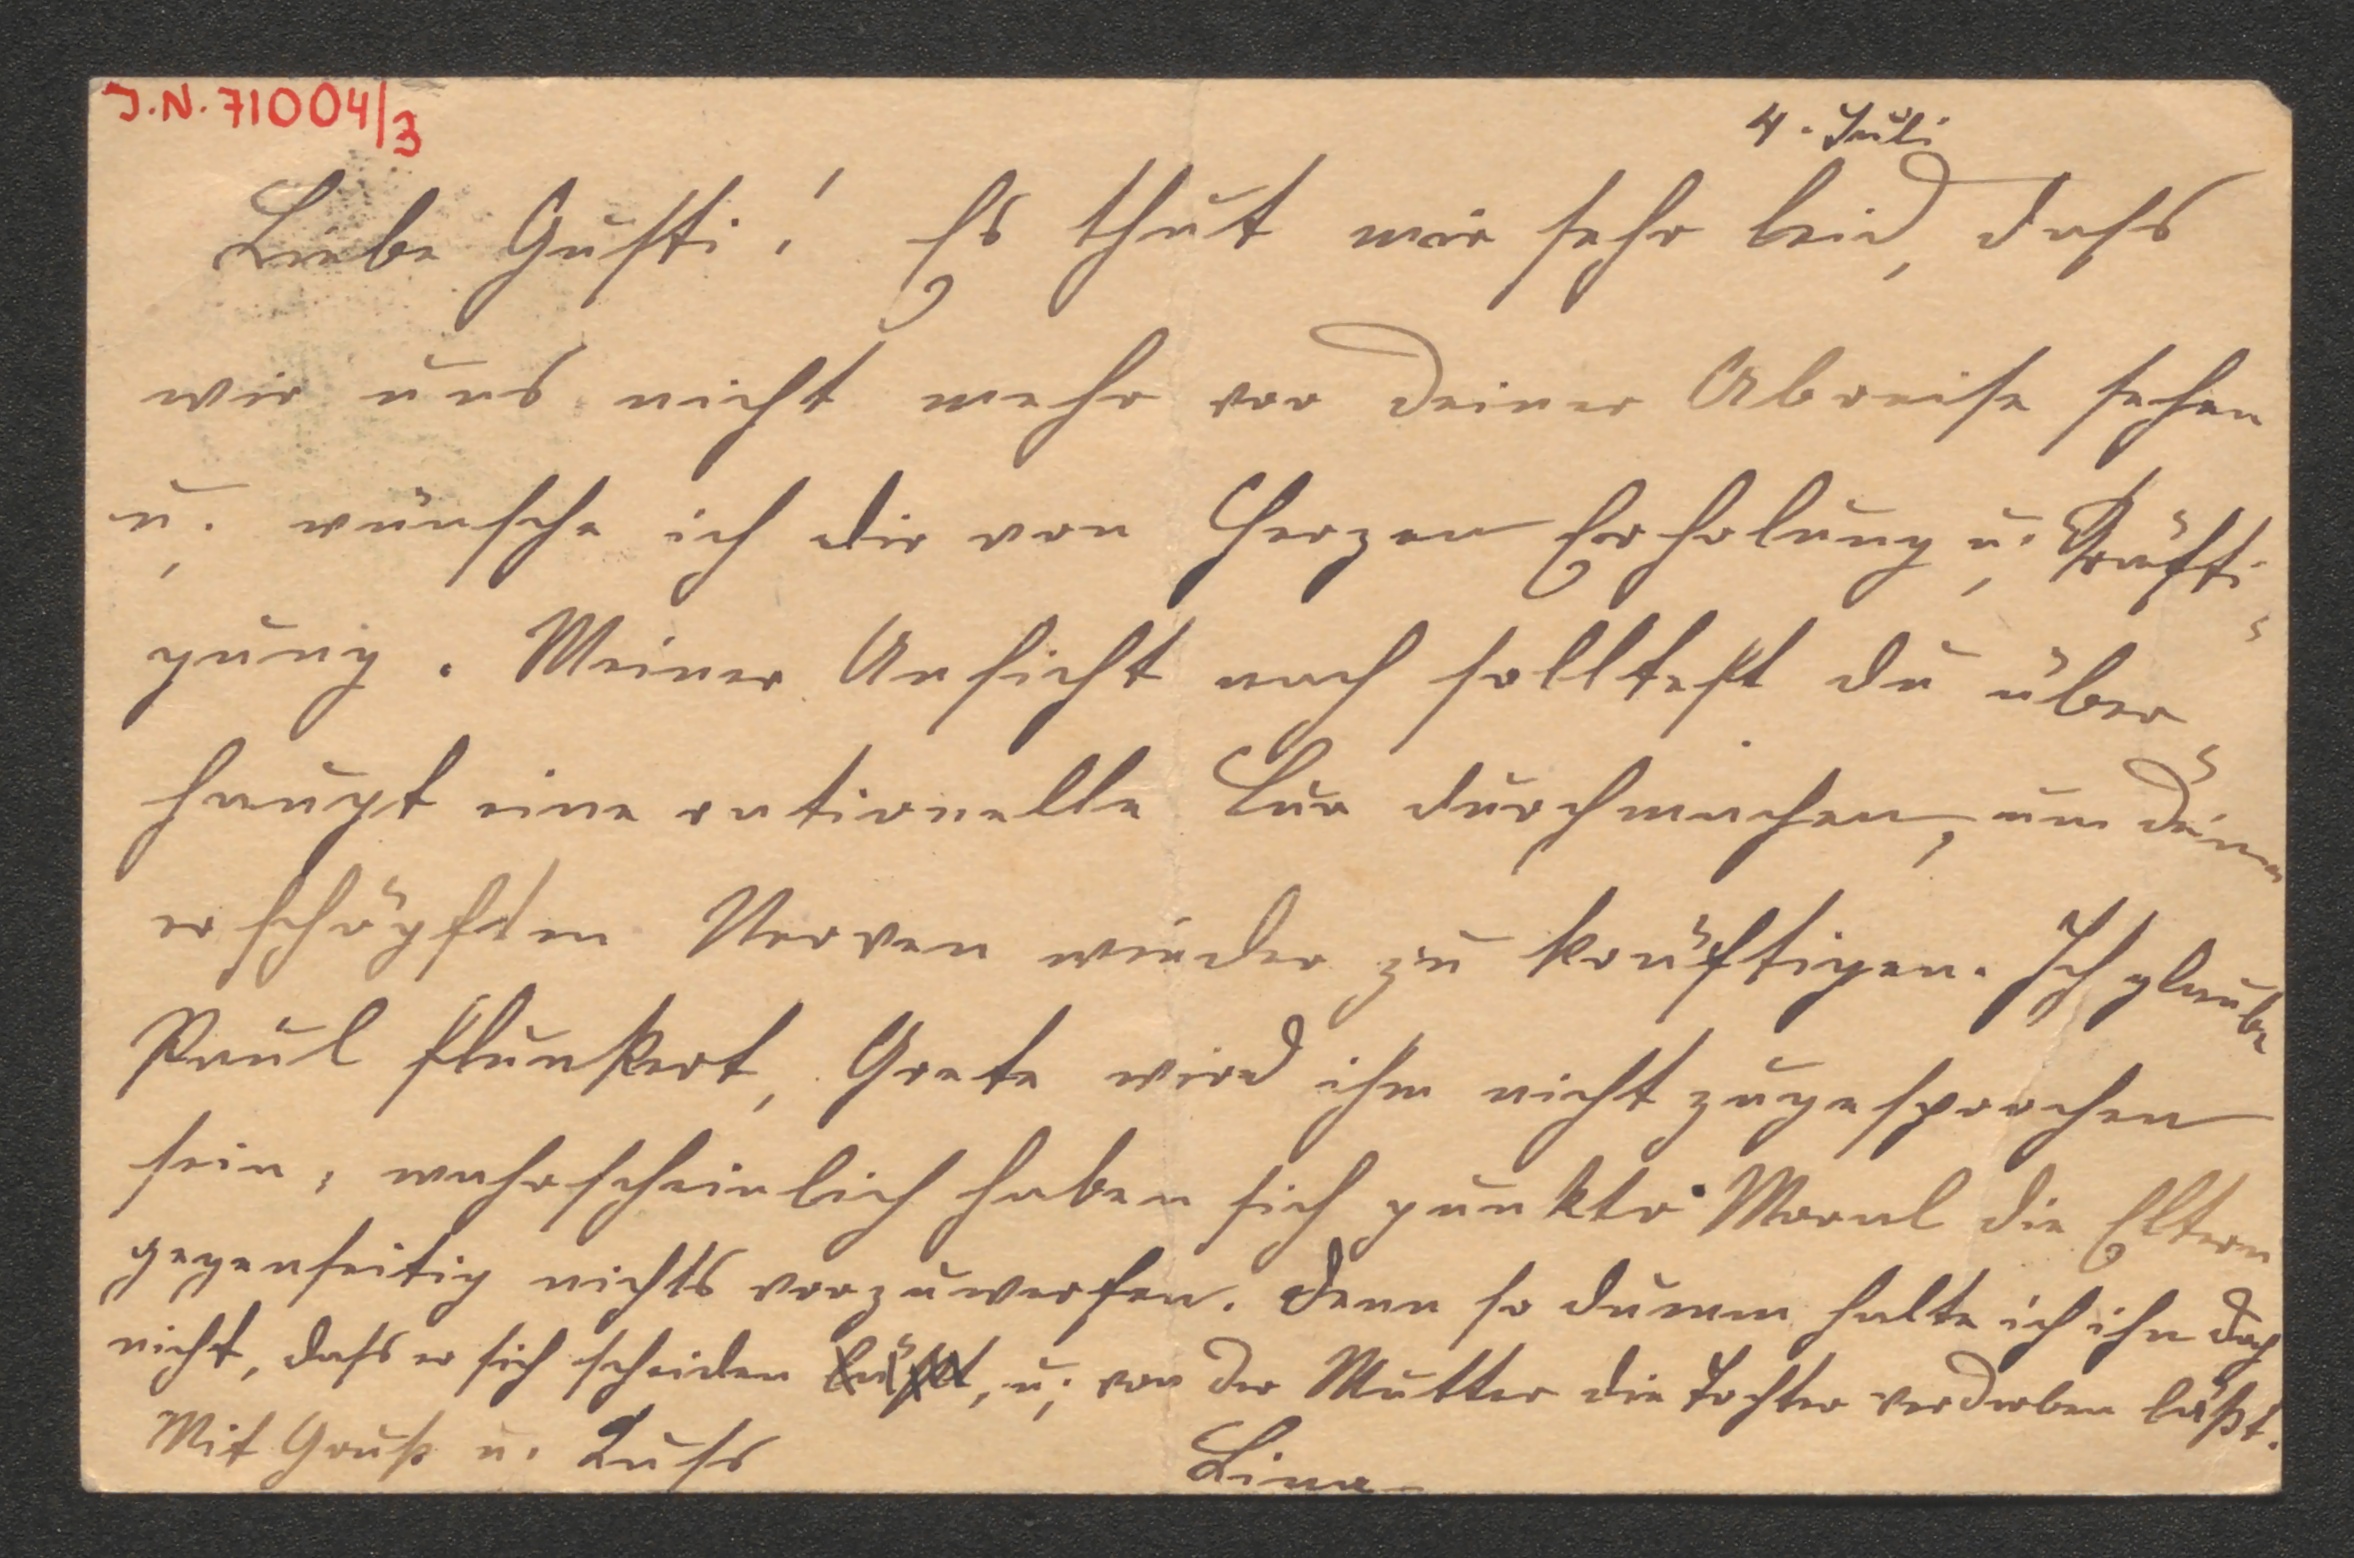 J.N. 71004/3
4. Juli
Liebe Gusti! Es thut mir sehr leid, dass
wir uns nicht mehr vor Deiner Abreise sehen
u. wünsche ich dir von Herzen Erholung u. Kräfti-
gung. Meiner Ansicht nach solltest du über-
haupt eine rationelle Cur durchmachen, um Deine
erschöpften Nerven wieder zu kräftigen. Ich glaube
Paul flunkert, Grete wird ihm nicht zugesprochen
sein, wahrscheinlich haben sich punkto Moral die Eltern
gegenseitig nichts vorzuwerfen. Denn so dumm halte ich ihn doch
nicht, dass er sich scheiden läßt, u. von der Mutter die Tochter verderben läßt.
Mit Gruß u. Kuss
Lina